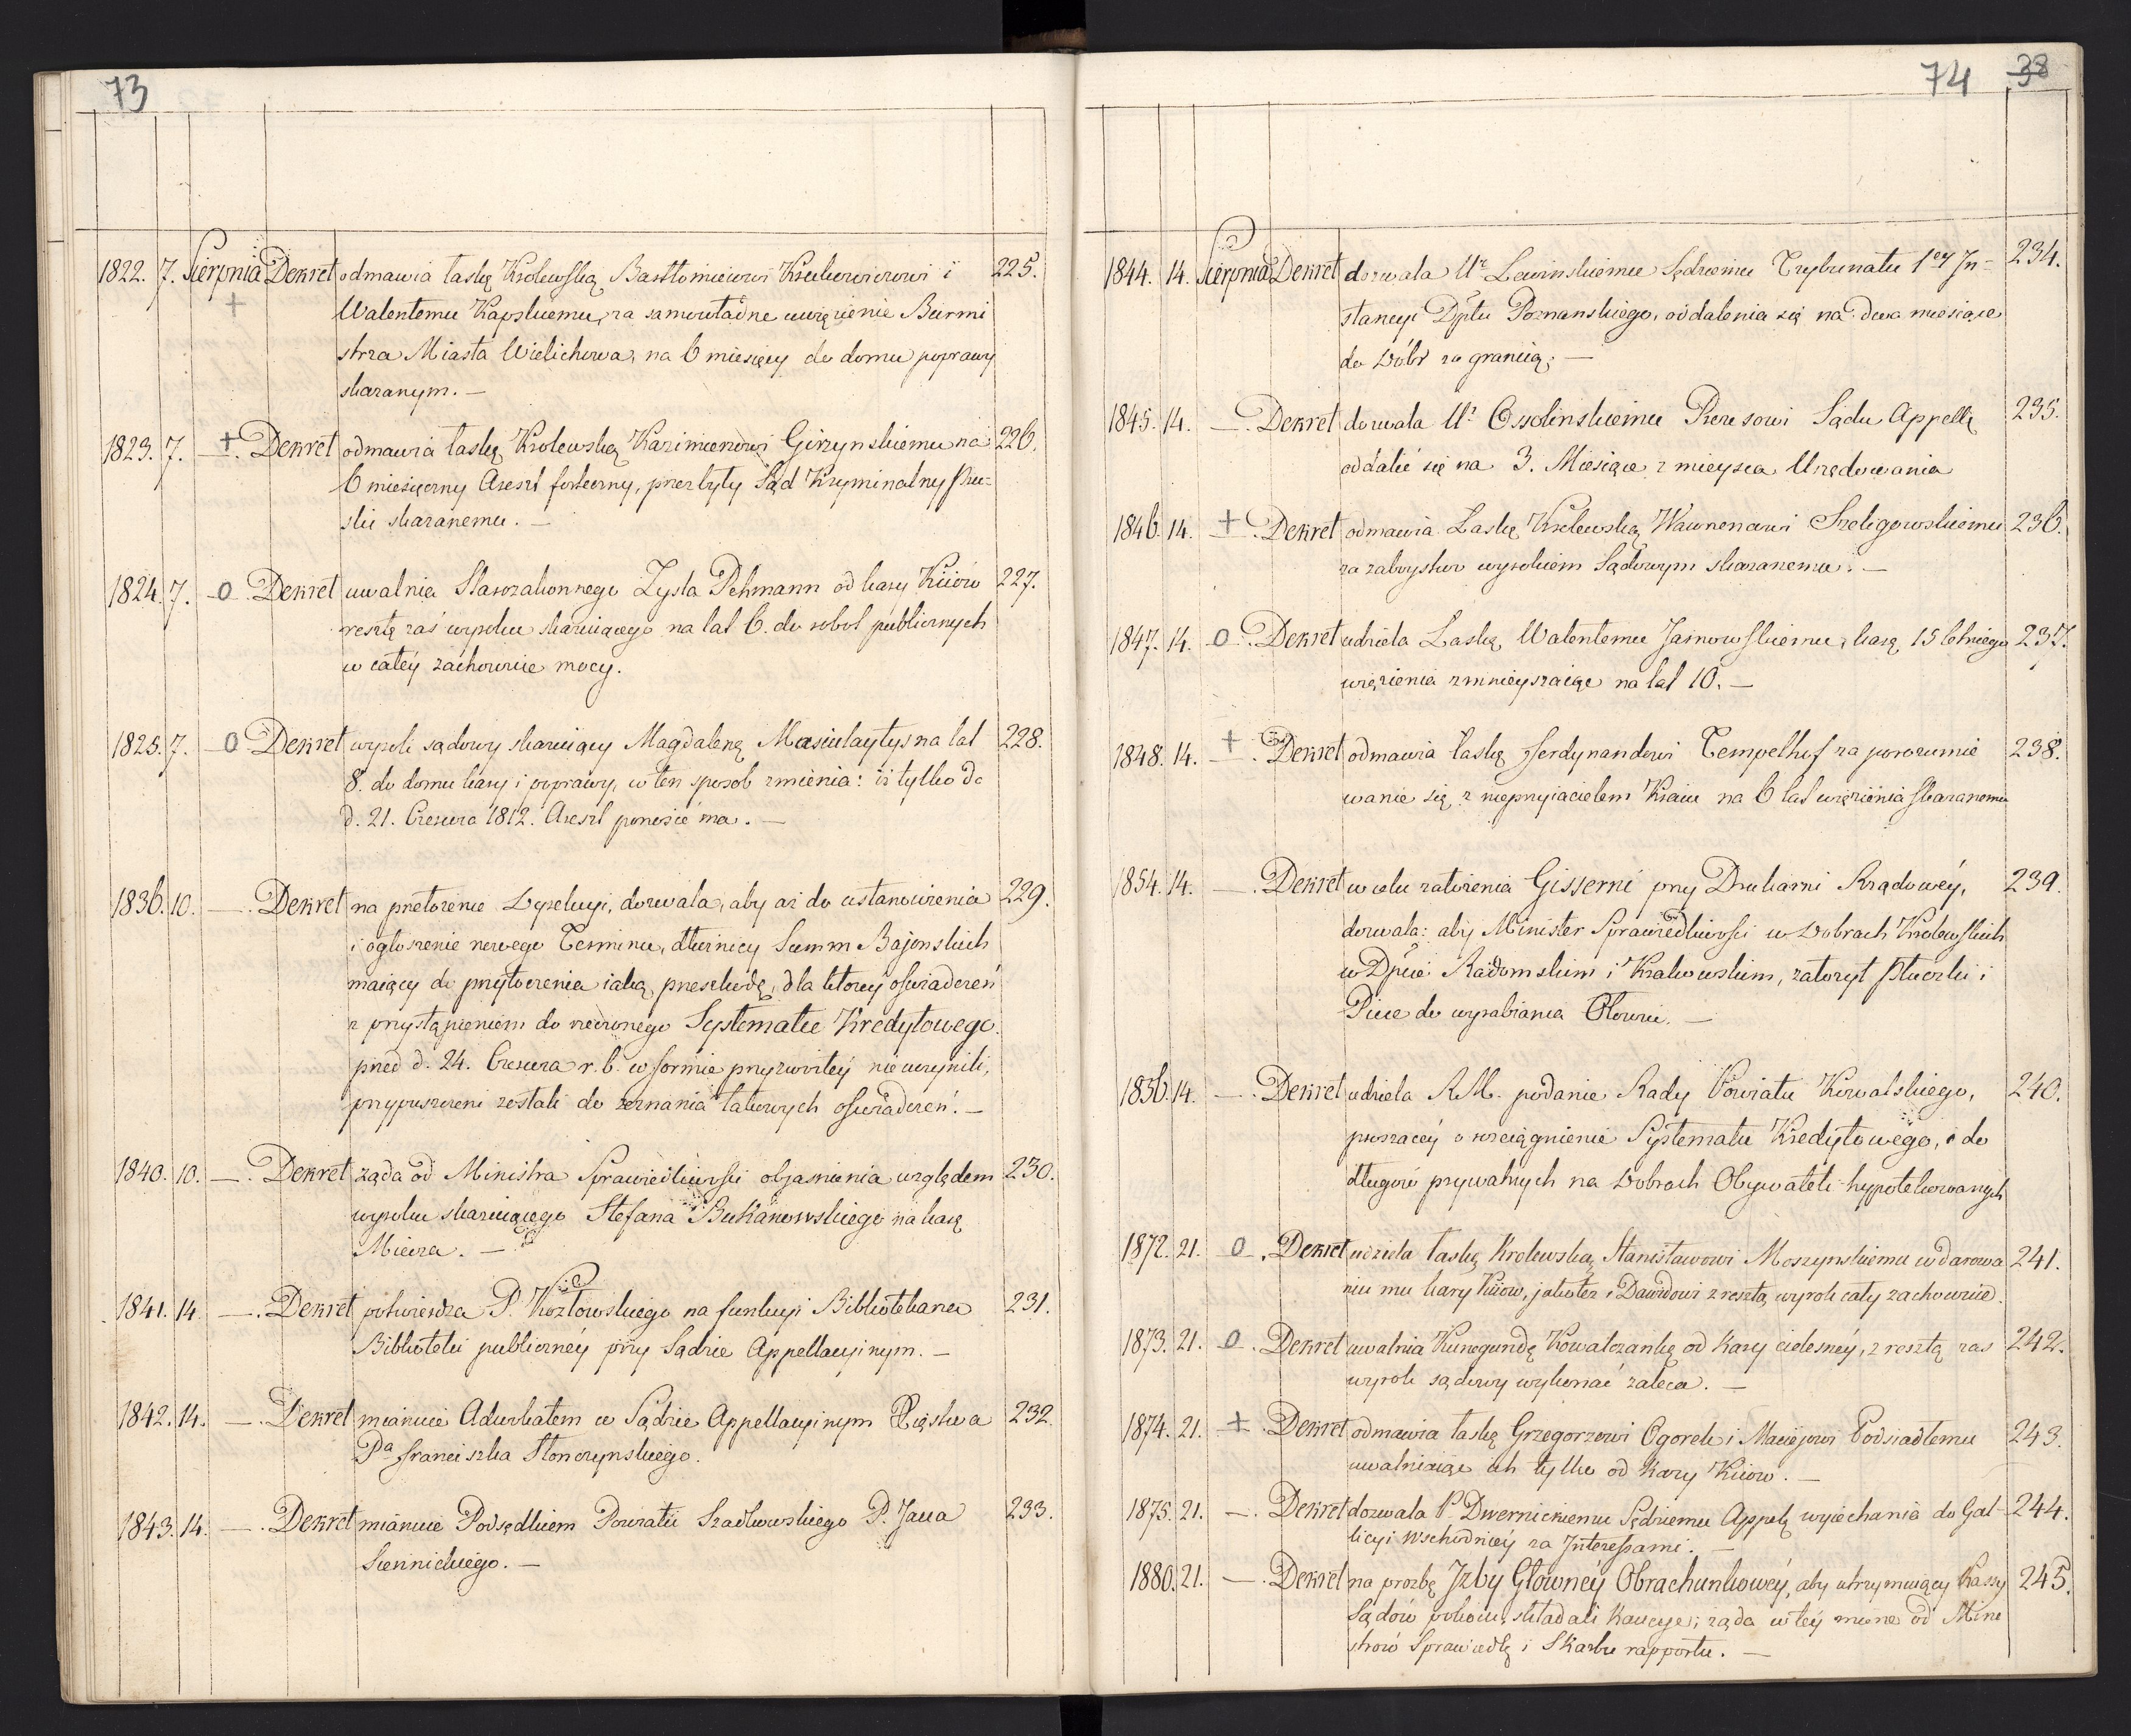 73
1822. 7. Sierpnia Dekret odmawia łaskę Krolewską Bartłomieiowi Krukowiczowi i 225.
+ Walentemu Kapskiemu, za samowładne uwięzienie Burmi
strza Miasta Wielichowa, na 6 miesięcy do domu poprawy
skazanym. —
1823. 7. +. Dekret odmawia łaskę Krolewską Kazimierzowi Girzynskiemu na 226.
6 miesięczny Areszt forteczny, przez były Sąd Kryminalny Pru-
ski skazanemu. —
1824. 7. O Dekret uwalnia Starozakonnego Zysla Pehmann od kary Kiiów 227.
resztę zaś wyroku skazuiącego na lat 6. do robot publicznych
w całéy zachowuie mocy.
1825. 7. O Dekret wyrok sądowy skazuiący Magdalenę Masiulaytys na lat 228.
8. do domu kary i poprawy, w ten sposob zmienia: iż tylko do
d. 21. Czerwca 1812. Areszt ponosić ma. —
1836. 10. —. Dekret na przełożenie Dyrekcyi, dozwala, aby aż do ustanowienia 229.
i ogłoszenie nowego Terminu, dłużnicy Summ Bajonskich
maiący do przytoczenia iaką przeszkodę, dla ktorey oświadczeń
z przystąpieniem do rzeczonego Systematu Kredytowego.
przed d. 24. Czerwca r. b. w formie przyzwoitéy nie uczynili,
przypuszczeni zostali do zeznania takowych oświadczeń. —
1840. 10. —. Dekret żąda od Ministra Sprawiedliwości objasnienia względem 230.
wyroku skazuiącego Stefana Bukanowskiego na karę
Miecza. —
1841. 14 —. Dekret potwierdza P. Kozłowskiego na funkcyi Bibliotekarza 231.
Biblioteki publicznéy przy Sądzie Appellacyinym. —
1842. 14. —. Dekret mianuie Adwokatem w Sądzie Appellacyinym Xięstwa 232.
Pa Franciszka Słonczynskiego.
1843. 14. —. Dekret mianuie Podsędkiem Powiatu Szadkowskiego P. Jana 233.
Siennickiego. —
74 38
1844. 14. Sierpnia Dekret dozwala Ur Lewinskiemu Sędziemu Trybunału 1ey In- 234.
stancyi Dptu Poznanskiego, oddalenia się na dwa miesiące
do Dóbr za granicą. —
1845. 14. —. Dekret dozwala Ur Ossolinskiemu Prezesowi Sądu Appellą 235.
oddalić się na 3. Miesiące z mieysca Urzędowania
1846. 14. +. Dekret odmawia Łaskę Krolewską Wawrzencowi Szeligowskiemu 236.
za zabóystwo wyrokiem Sądowym skazanemu. —
1847. 14. O. Dekret udziela Łaskę Walentemu Jasnowskiemu, karę 15 letniego 237.
więzienia zmnieyszaiąc na lat 10. —
1848. 14. +. Dekret odmawia łaskę Ferdynandowi Tempelhof za porozumie 238.
wanie się z nieprzyiacielem Kraiu na 6 lat więzienia skazanemu
1854. 14. —. Dekret w celu założenia Gisserni przy Drukarni Rządowéy, 239.
dozwala: aby Minister Sprawiedliwości w Dobrach Krolewskich
w Dpcie Radomskim i Krakowskim, założył Płuczki i
Piece do wyrabiania Ołowiu. —
1856. 14. —. Dekret udziela RM. podanie Rady Powiatu Kowalskiego, 240.
proszącéy o rozciągnienie Systematu Kredytowego, i do
długów prywatnych na Dobrach Obywateli hypotekowanych
1872. 21. O. Dekret udziela łaskę Krolewską Stanisławowi Moszynskiemu w darowa 241.
niu mu kary Kiiow, jakoteż i Dawidowi z resztą wyrok cały zachowuie.
1873. 21. O. Dekret uwalnia Kunegundę Kowalczankę od Kary cielesnéy, z resztą zas 242.
wyrok sądowy wykonać zaleca. —
1874. 21. +. Dekret odmawia łaskę Grzegorzowi Ogorek i Maciejowi Podsiadłemu 243.
uwalniaiąc ich tylko od Kary Kiiow. —
1875. 21. —. Dekret dozwala P. Dwernickiemu Sędziemu Appelą wyiechania do Gal- 244.
licyi Wschodnićy za Interessami. —
1880. 21. —. Dekret na prozbę Izby Głownéy Obrachunkowéy, aby utrzymuiący Kassy 245.
Sądów pokoiu, składali Kaucye; żąda w téy mierze od Mini
strów Sprawiedlą i Skarbu rapportu. —